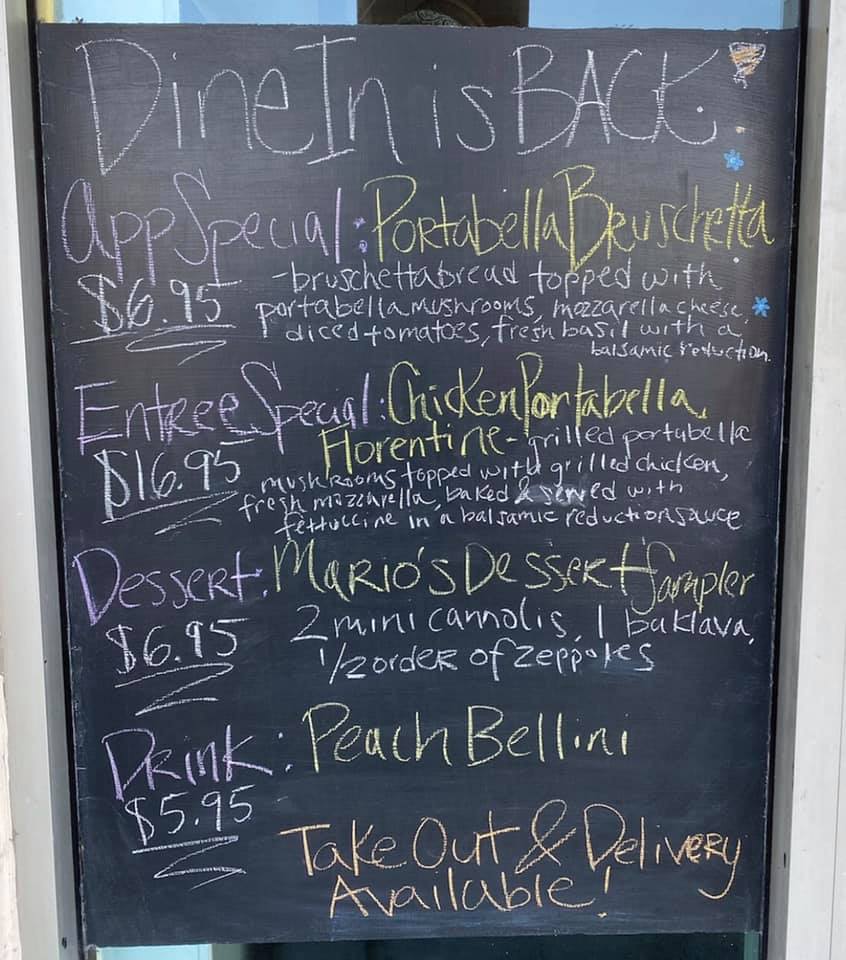 Dine In is BACK.
App Special: Portabella Bruschetta
$6.95
-bruschetta bread topped with
portabella mushrooms, mozzarella cheese,
diced tomatoes, fresh basil with a
balsamic reduction.
Entree Special: Chicken Portabella
$16.95
Florentine - grilled portabella
mushrooms topped with grilled chicken,
fresh mozzarella, baked & served with
fettuccine in a balsamic reduction sauce
Dessert: Mario's Dessert Sampler
$6.95
2 mini cannolis, 1 baklava,
1/2 order of zeppoles
Drink: Peach Bellini
$5.95
Take Out & Delivery
Available!